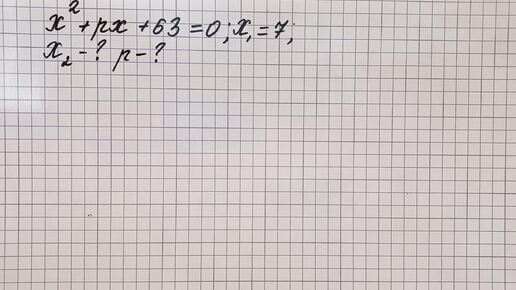 x² + px + 63 = 0; x₁ = 7;
x₂ - ? p - ?